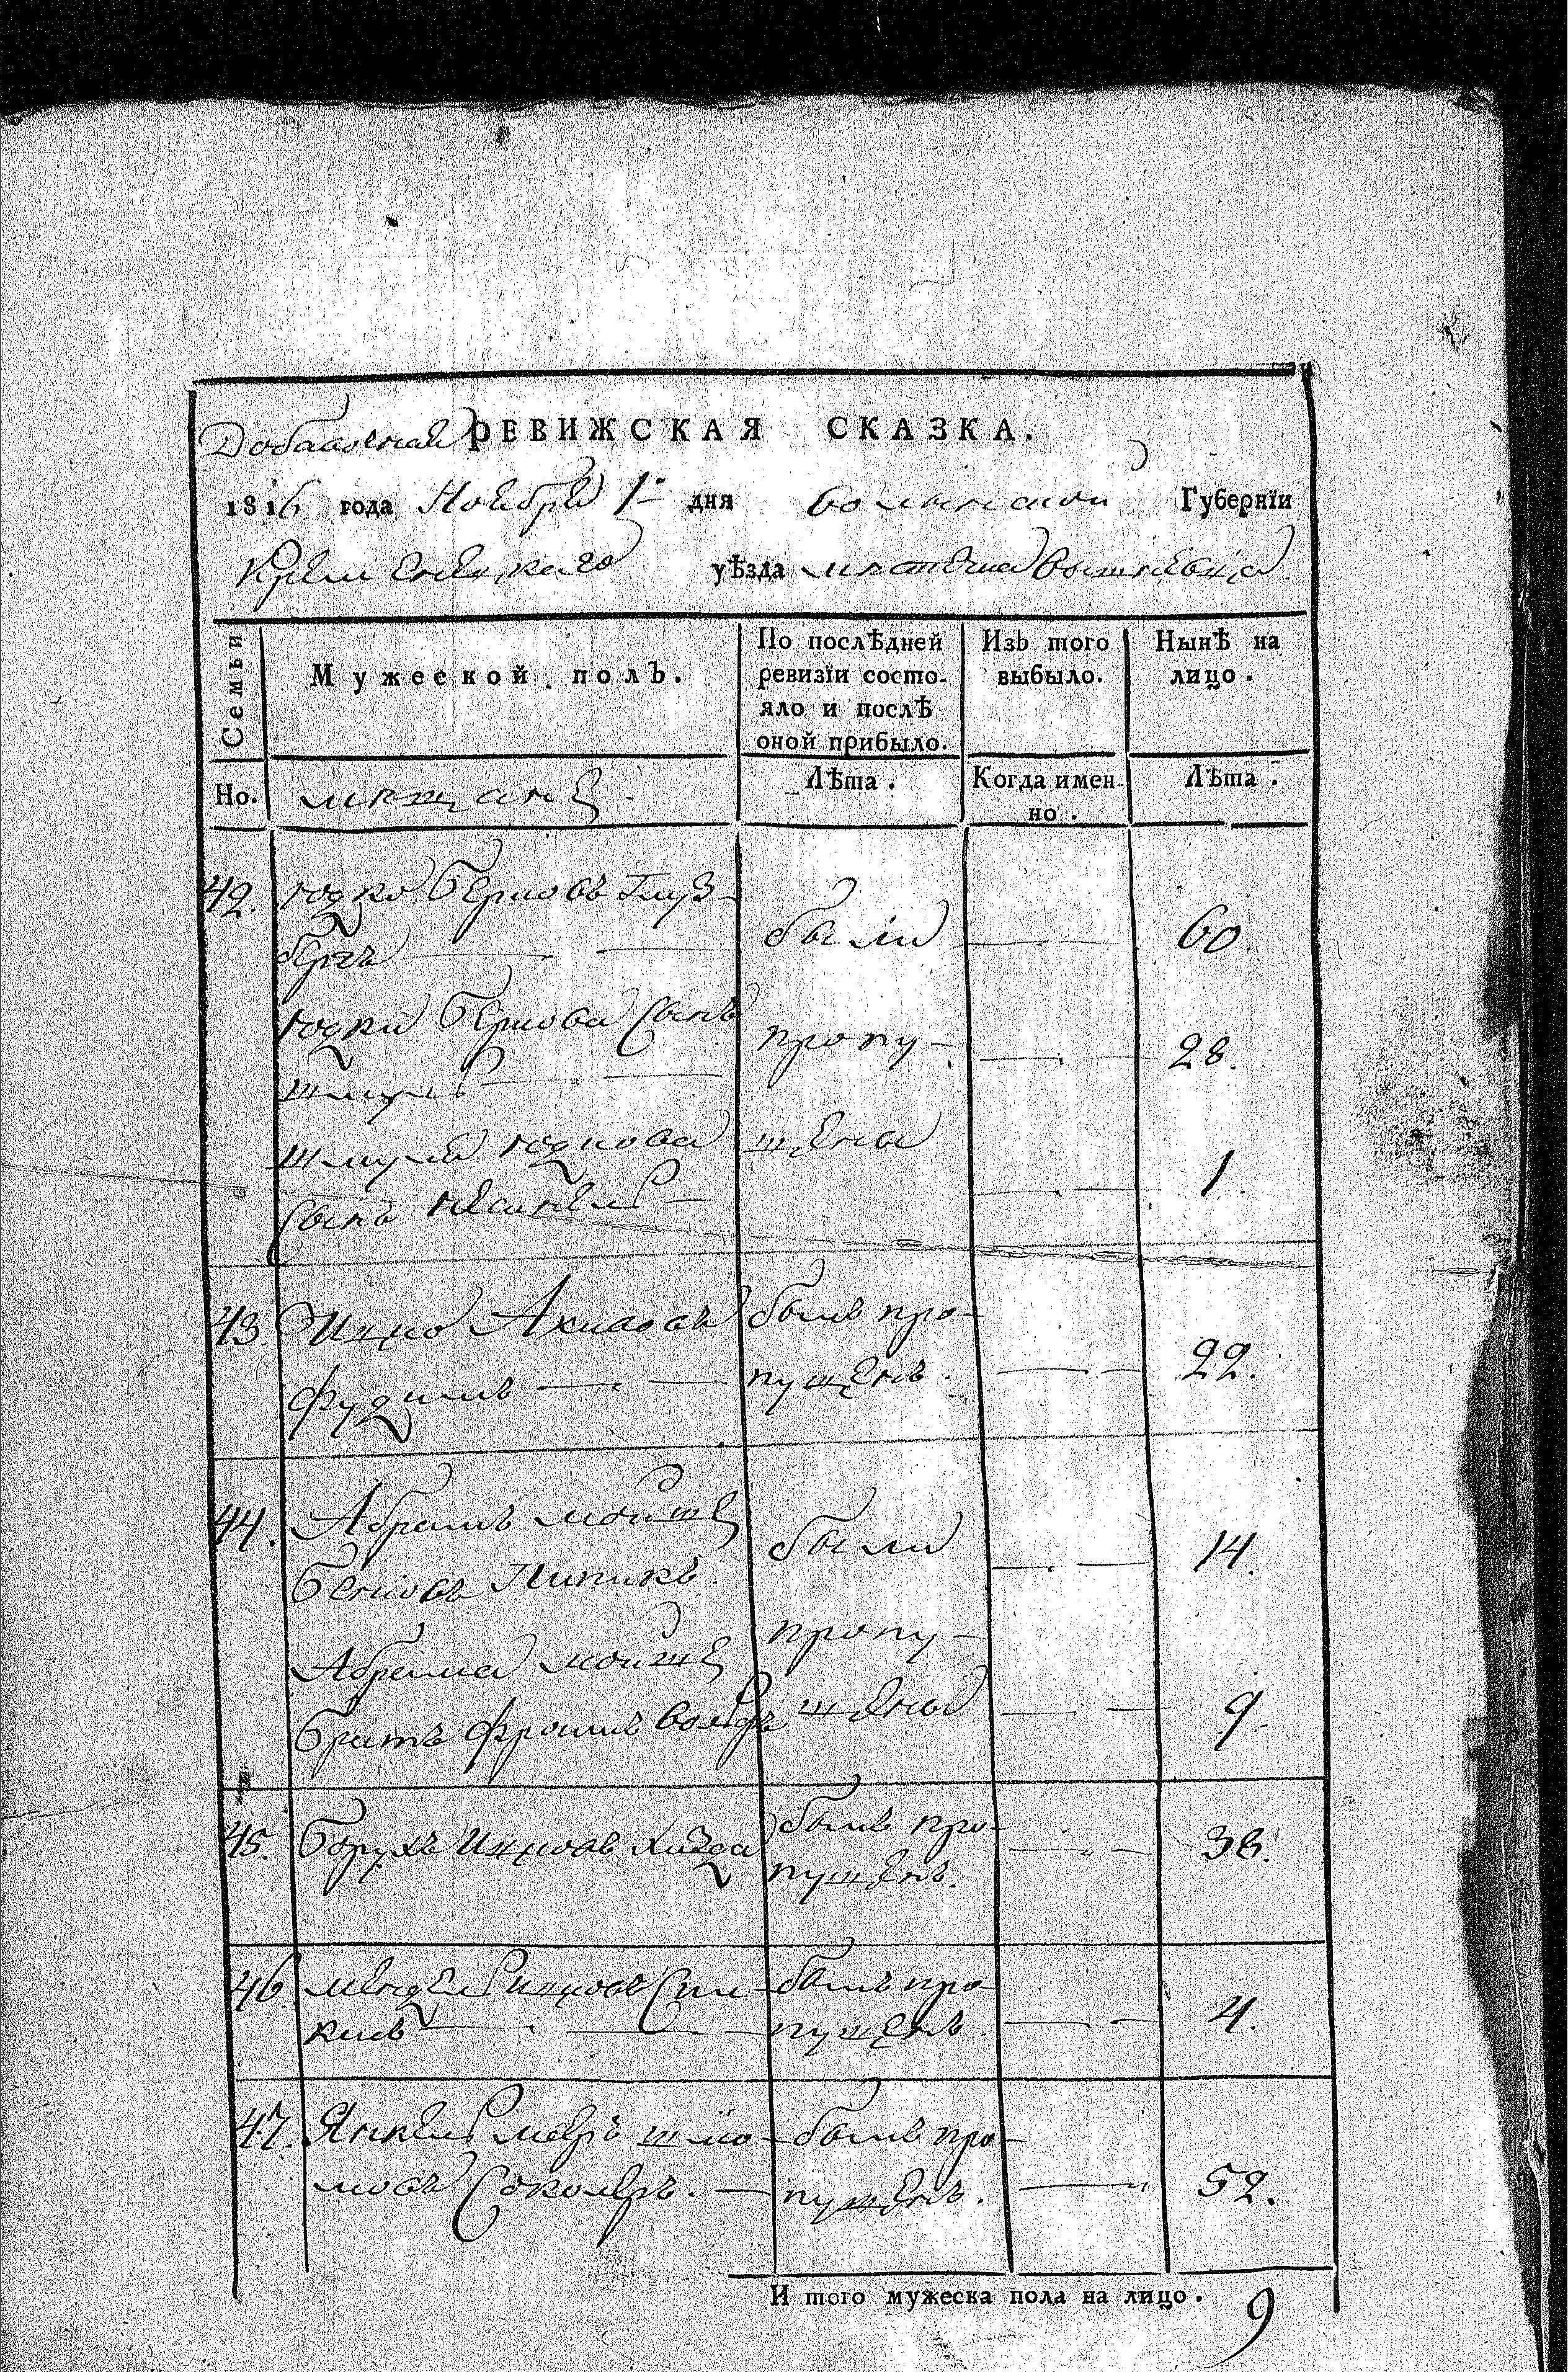 Добавочная РЕВИЖСКАЯ СКАЗКА.
1816 года Ноября 1го дня волынской Губернїи
Кременецкаго уѣзда местечка вышневца
Семьи
Мужеской полъ.
По послѣдней
ревизїи состо-
яло и послѣ
оной прибыло.
Изъ того
выбыло.
Нынѣ на
лицо.
Но.
мещане
Лѣта.
Когда имен-
но.
Лѣта.
42. юдко берковъ
были 60.
юдки беркова сынъ
шмуль пропу- 28.
шмуля юдкова щены
сынъ 1.
43. Ицко былъ про-
пущенъ. 22.
44. Абрамъ мойше
берковъ были 14.
пропу-
Абрама мойше
братъ фроимъ вольфъ щены 9.
45. борухъ Ицковъ былъ про-
пущенъ. 38.
46. мендель ицковъ былъ про-
пущенъ 4.
47. Янкель мееръ шло- былъ про-
мовъ Соколеръ. пущенъ. 52.
И того мужеска пола на лицо. 9